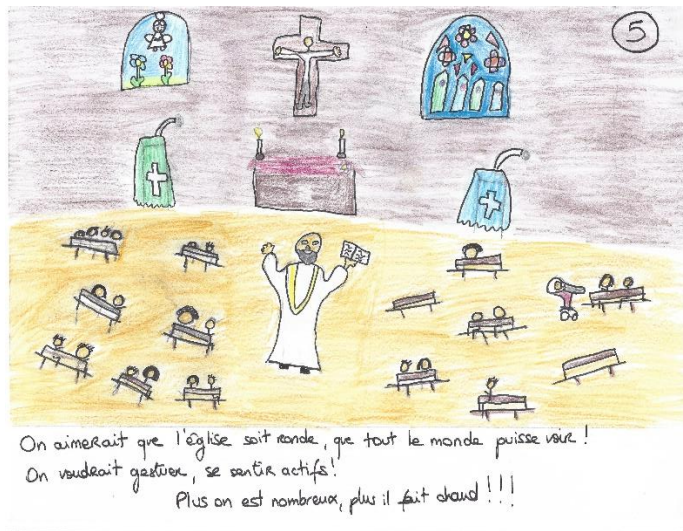 5
On aimerait que l'église soit ronde, que tout le monde puisse voir !
On voudrait gestuer, se sentir actifs!
Plus on est nombreux, plus il fait chaud !!!